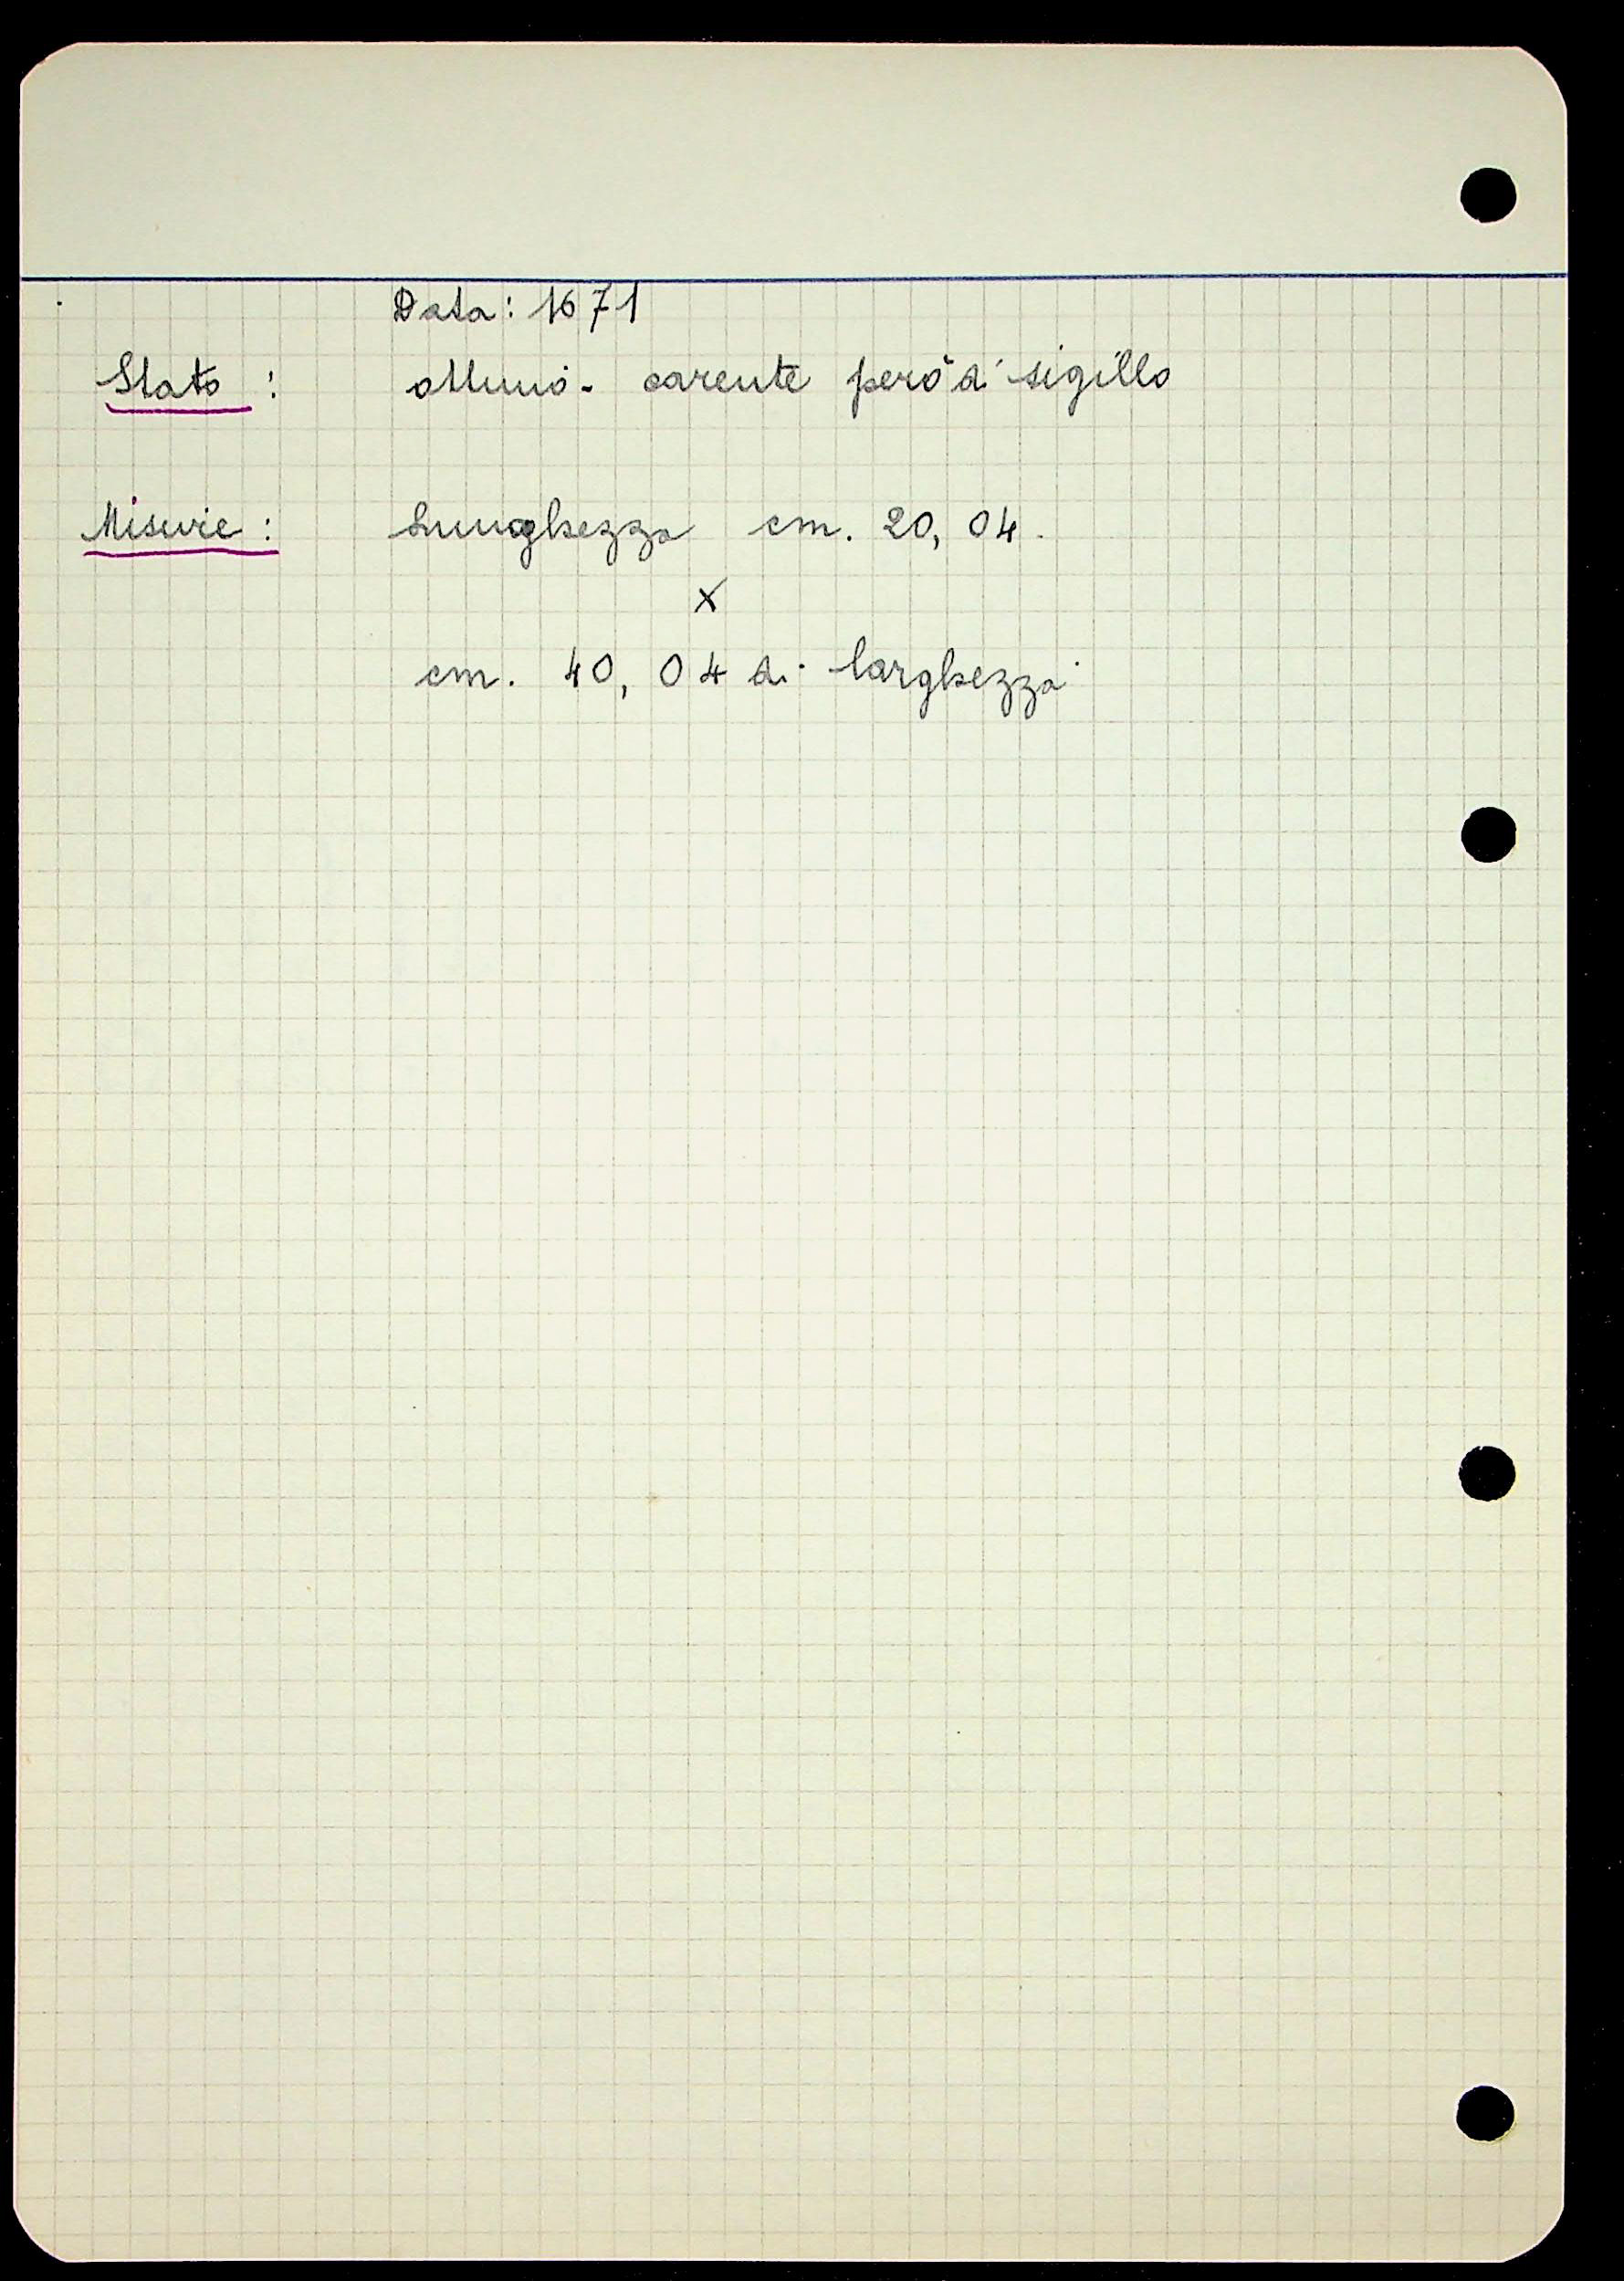 Data: 1671
Stato : ottimo - carente però di sigillo
Misure : Lunghezza cm. 20,04.
x
cm. 40,04 di larghezza